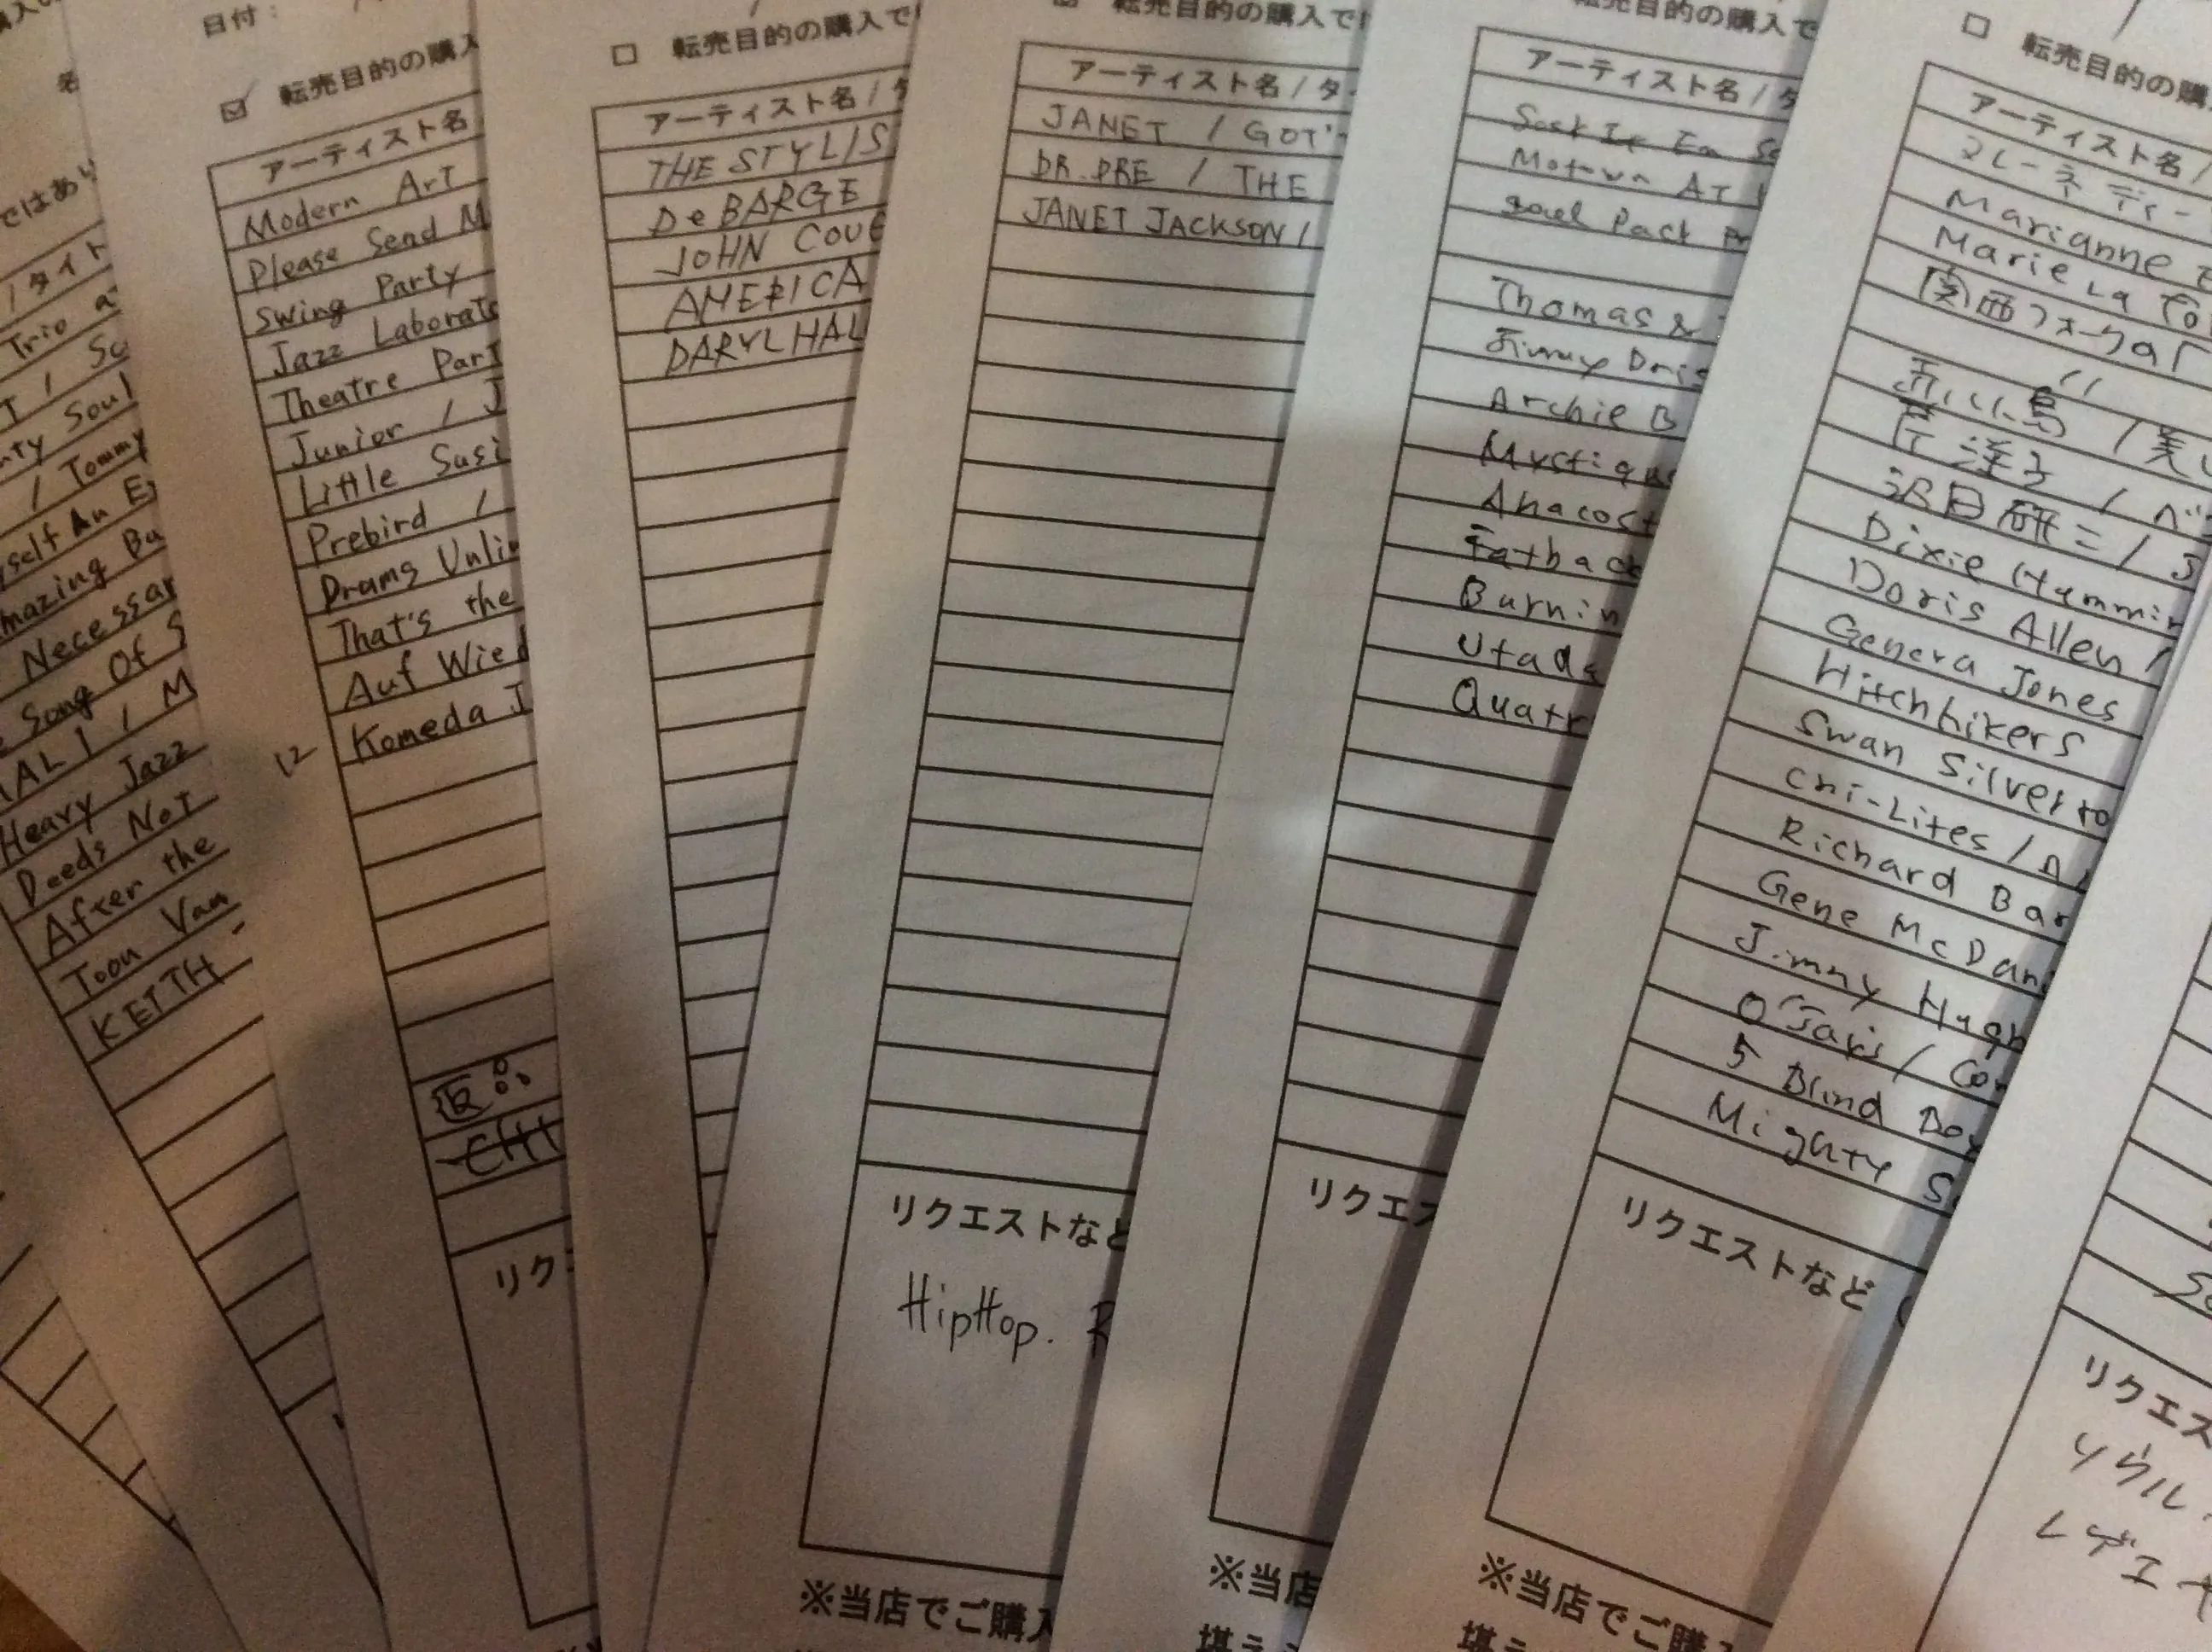 / タイト
Trio a
T / So
nty Soul
/ Tommy
yself An E
mazing Ba
Necessar
Song Of S
ALI / M
Heavy Jazz
Deeds Not
After the
Toon Van
KEITH
日付：
転売目的の購入
アーティスト名
Modern Art
Please Send M
Swing Party
Jazz Laborato
Theatre Part
Junior / J
Little Susi
Prebird /
Drums Unlim
That's the
Auf Wied
Komeda J
12
リク
転売目的の購入で
アーティスト名 / タ
THE STYLIS
DeBARGE
JOHN
AMERICA
DARYL HAL
転売目的の購入で
アーティスト名 / タ
JANET / GOT
DR. DRE / THE
JANET JACKSON /
リクエストなど
HipHop. R
※当店でご購入
転売目的の購入で
アーティスト名 / タ
Motown At
Soul Pact
Thomas &
Jimmy Bris
Archie B
Mystique
Anacost
Fatback
Burnin
Utada
Quatr
リクエス
※当店
堪え
転売目的の購
アーティスト名 /
マレーネ ディー
Marianne F
Marie La
関西フォークの
〃
五つの赤い風船 / 美し
洋子 / ベ
沢田研二 / J
Dixie Hummin
Doris Allen /
Geneva Jones
Hitchhikers
Swan Silverto
Chi-Lites / A
Richard Bar
Gene McDan
Jimmy Hugh
O'Jays / Con
5 Blind Boy
Mighty S
リクエストなど
※当店でご購入
堪え
リクエス
ソウル
レゲエ